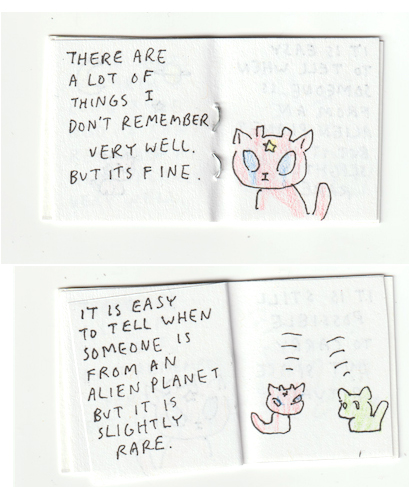 THERE ARE
A LOT OF
THINGS I
DON'T REMEMBER
VERY WELL.
BUT ITS FINE.
IT IS EASY
TO TELL WHEN
SOMEONE IS
FROM AN
ALIEN PLANET
BUT IT IS
SLIGHTLY
RARE.